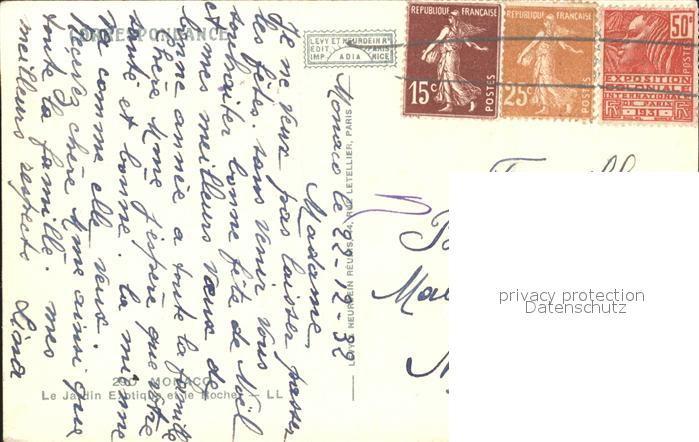 CORRESPONDANCE
LEVY ET NEURDEIN Rs
EDIT PARIS
IMP ADIA NICE
REPUBLIQUE FRANÇAISE
15c POSTES
REPUBLIQUE FRANÇAISE
25c POSTES
50c
POSTES
EXPOSITION
COLONIALE
INTERNATIONALE
DE PARIS
1931
Monaco le 22-12-32
Madame
Je ne veux pas laisser passer
les fêtes sans venir vous
souhaiter bonne fête de Noël
et mes meilleurs vœux de
bonne année a toute la famille
chère Mme j'espère que votre
santé et bonne. la mienne
comme elle veux.
Recevez chère Mme ainsi que
toute la famille. mes
meilleurs respects
LEVY & NEURDEIN REUNIS, 44, RUE LETELLIER, PARIS
290 MONACO
Le Jardin Exotique et le Rocher — LL
privacy protection
Datenschutz